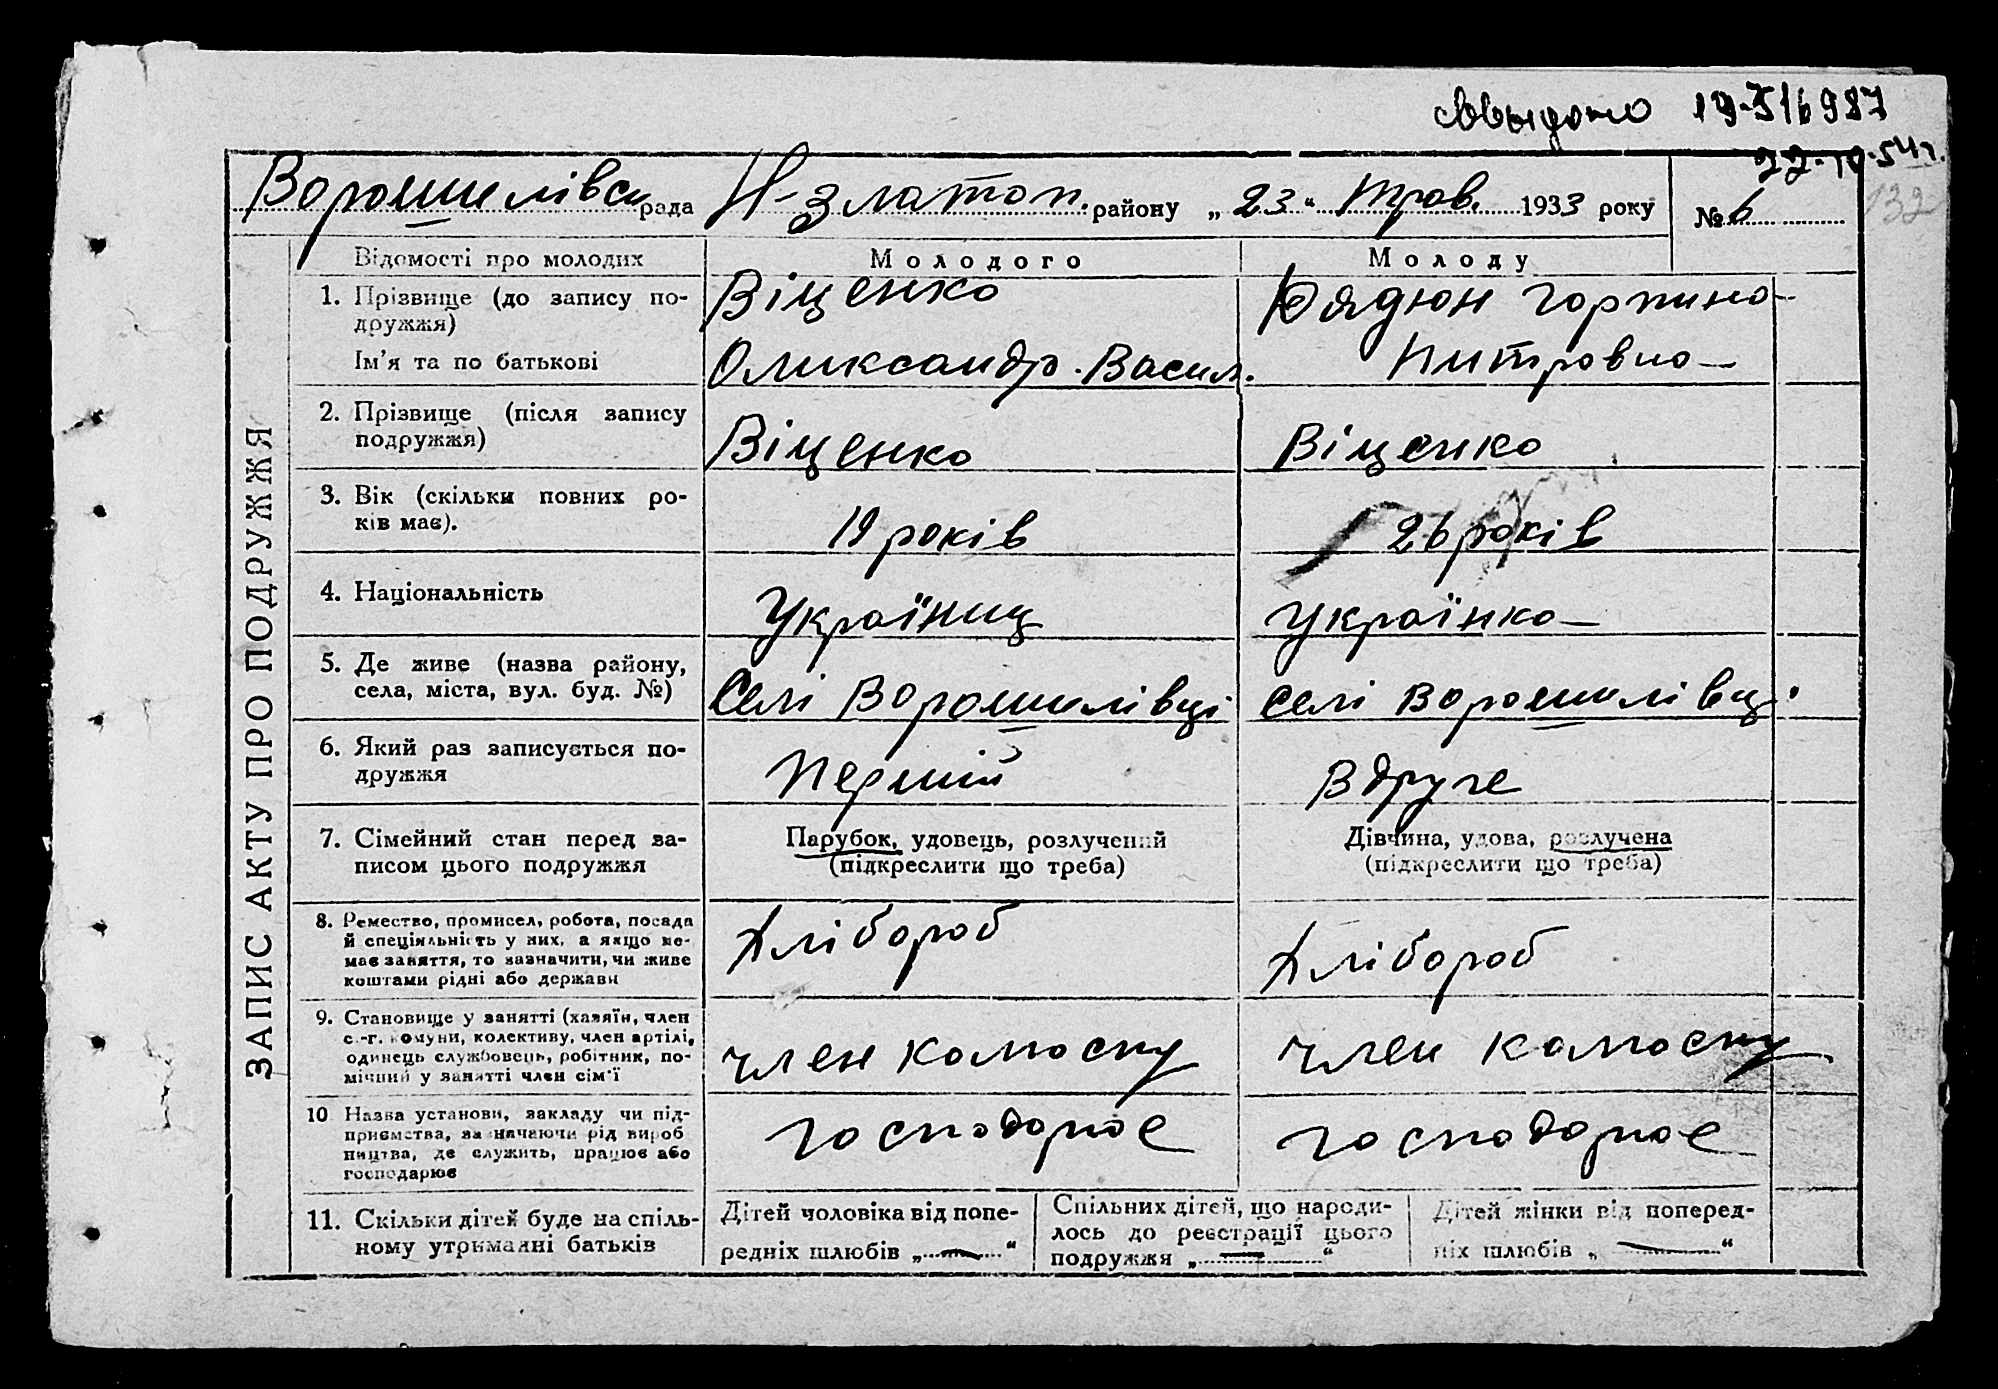 выдано
22.10.54 г.
132
Ворошилівськ рада Н-Златоп. району „ 23 “ трав. 1933 року № 6
ЗАПИС АКТУ ПРО ПОДРУЖЖЯ
Відомості про молодих Молодого Молоду
1. Прізвище (до запису по-
дружжя)
Віценко
горпина
Ім'я та по батькові
Олександр. Васил.
Питровна
2. Прізвище (після запису
подружжя)
Віценко
Віценко
3. Вік (скільки повних ро-
ків має).
19 років
26 років
4. Національність
Українец
Українка
5. Де живе (назва району,
села, міста, вул. буд. №)
Селі Ворошилівці
Селі Ворошилівці
6. Який раз записується по-
дружжя
Перший
Вдруге
7. Сімейний стан перед за-
писом цього подружжя
Парубок, удовець, розлучений
(підкреслити що треба)
Дівчина, удова, розлучена
(підкреслити що треба)
8. Ремество, промисел, робота, посада
й спеціяльність у них, а якщо не-
має заняття, то зазначити, чи живе
коштами рідні або держави
Хлібороб
Хлібороб
9. Становище у занятті (хазяїн, член
с.-г. комуни, колективу, член артілі,
одинець службовець, робітник, по-
мічний у занятті член сім'ї
член колгоспу
член колгоспу
10 Назва установи, закладу чи під-
приємства, зазначаючи рід вироб
ництва, де служить, працює або
господарює
господарює
господарює
11. Скільки дітей буде на спіль-
ному утриманні батьків
Дітей чоловіка від попе-
редніх шлюбів „ — “
Спільних дітей, що народи-
лось до реєстрації цього
подружжя „ — “
Дітей жінки від поперед-
ніх шлюбів „ — “